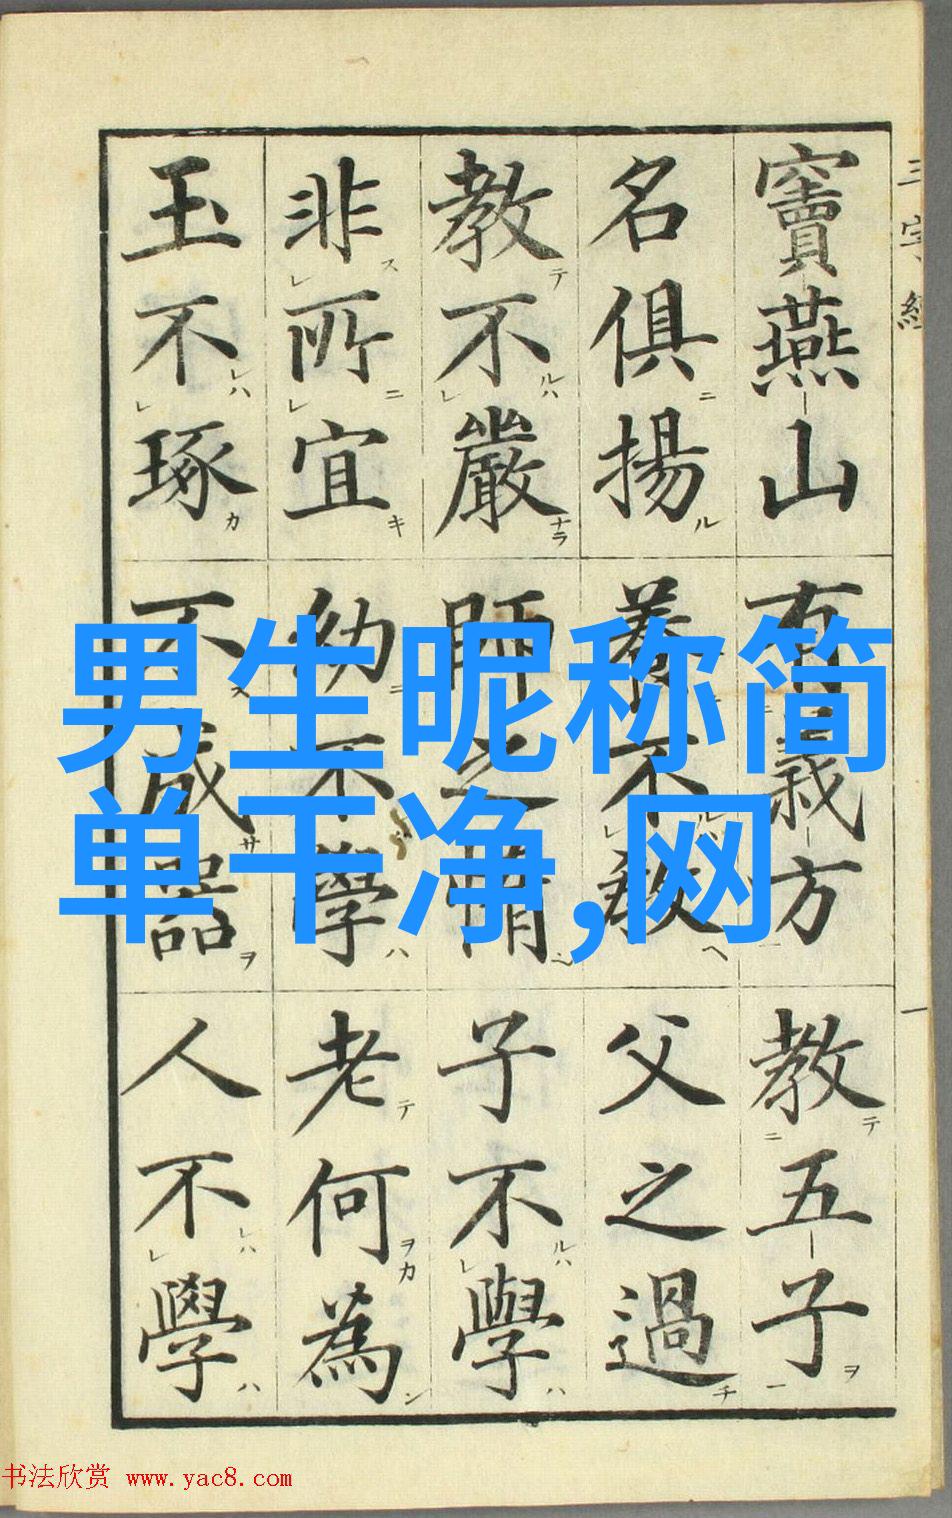 三字經 一
竇燕山有義方教五子
名俱揚養不教父之過
教不嚴師之惰子不學
非所宜幼不學老何為
玉不琢不成器人不學
男生昵称简
单干净,网
书法欣赏 www.yac8.com